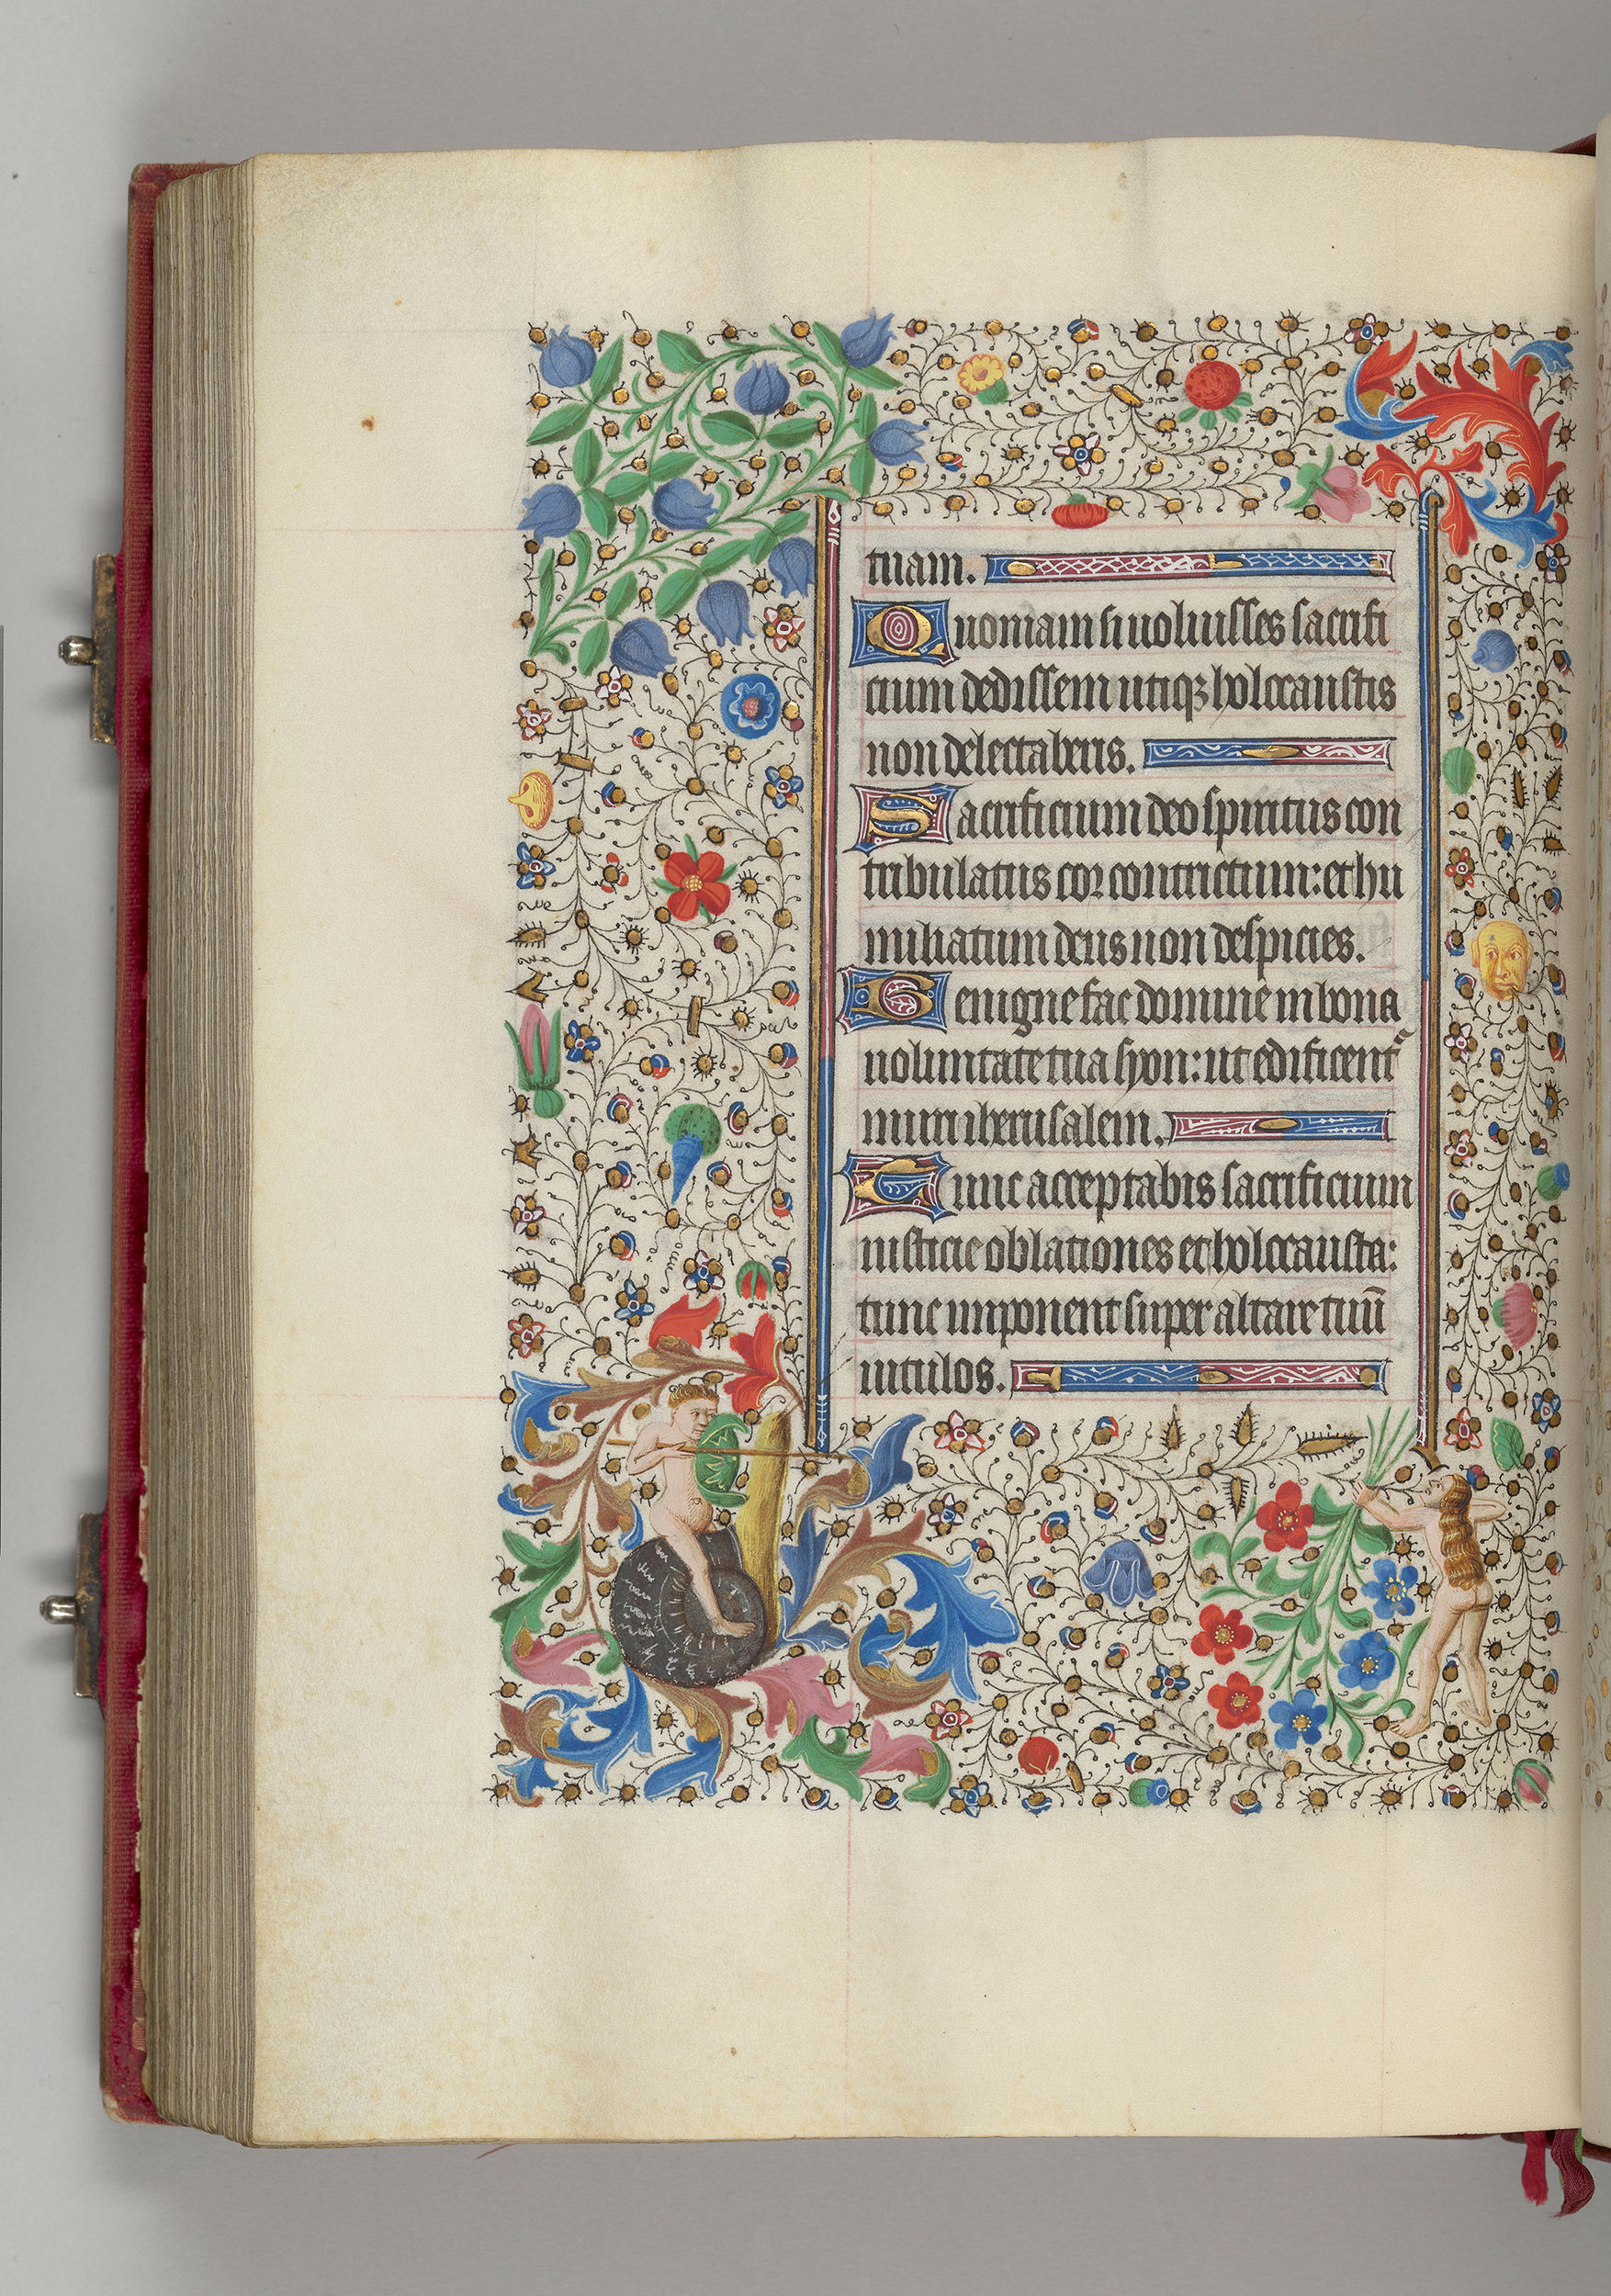 tuam.
Quoniam si uoluisses sacrifi
cium dedissem utiqꝫ holocaustis
non delectaberis.
Sacrificium deo spiritus con
tribulatus cor contrictum: et hu
miliatum deus non despicies.
Benigne fac domine in bona
uoluntate tua syon: ut edificent᷑
muri iherusalem.
Tunc acceptabis sacrificium
iusticie oblationes et holocausta:
tunc imponent super altare tuū
uitulos.